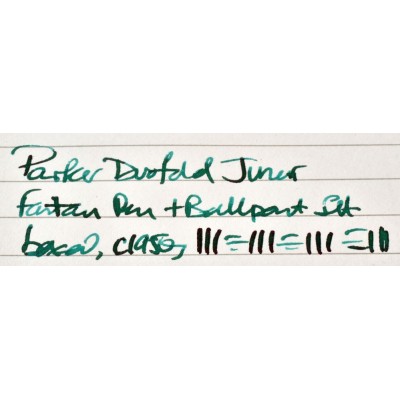 Parker Duofold Junior
Fountain Pen + Ballpoint Set
boxed, c1950,